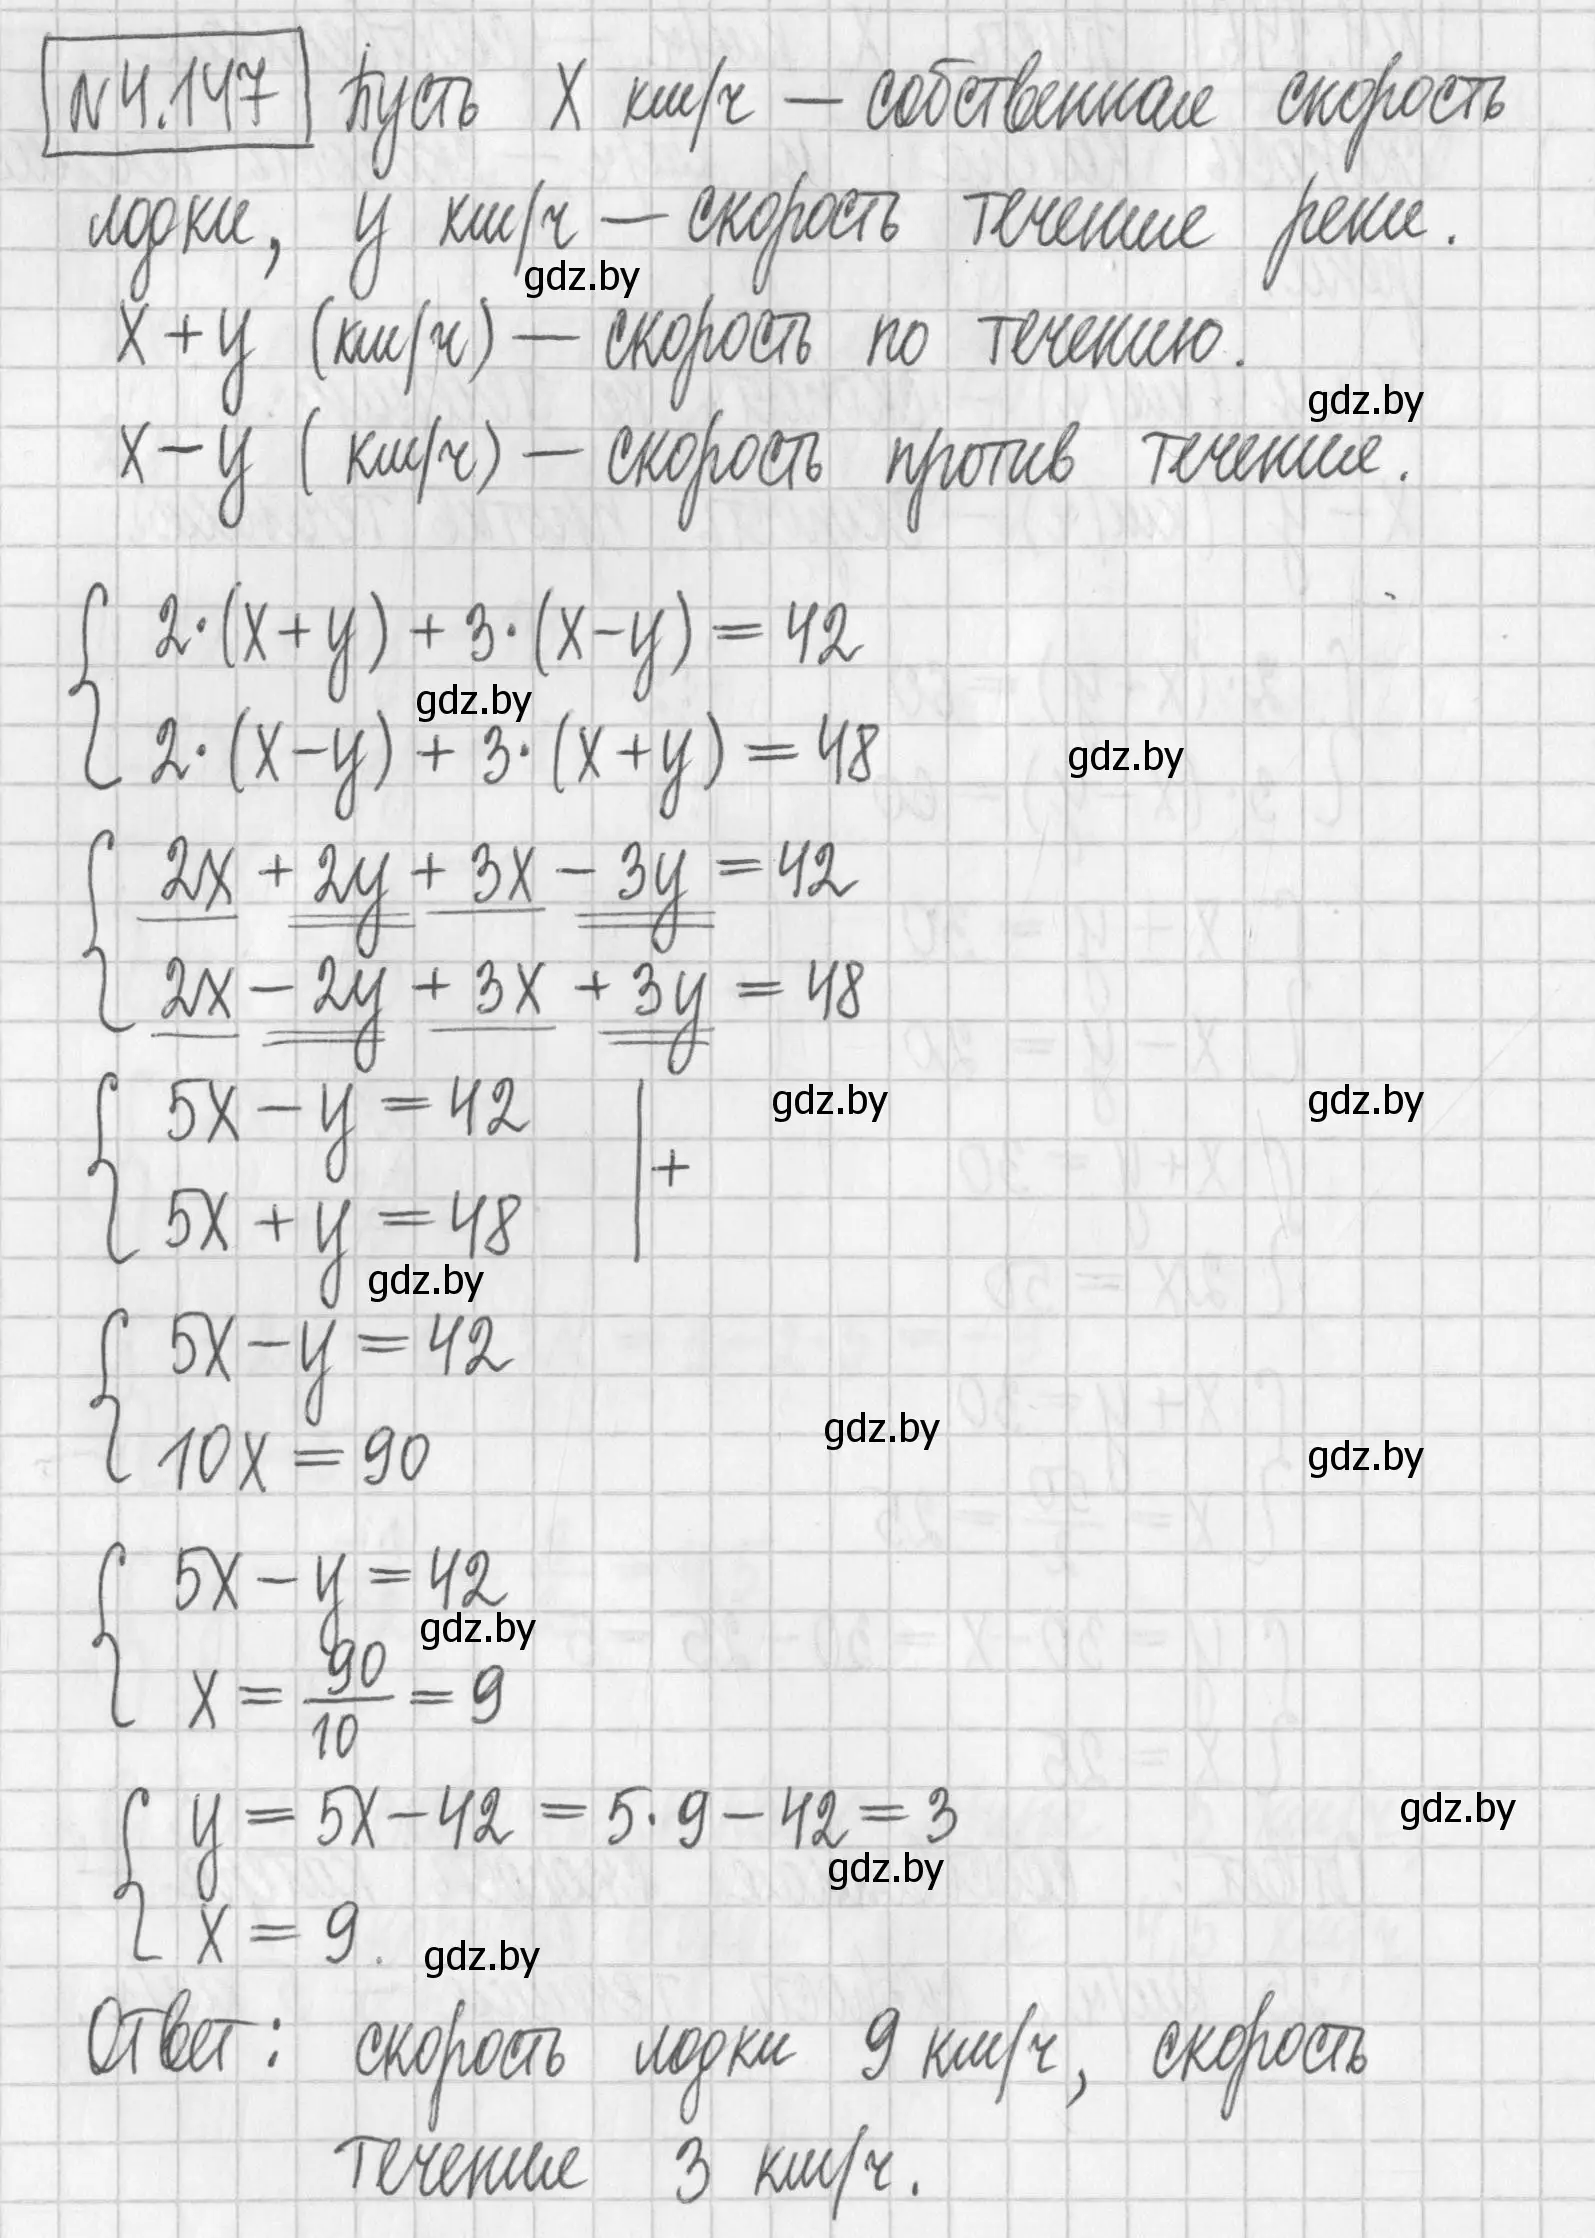 №4.147 Пусть x км/ч — собственная скорость
лодки, y км/ч — скорость течения реки.
gdz.by
x+y (км/ч) — скорость по течению.
gdz.by
x−y (км/ч) — скорость против течения.
2·(x+y)+3·(x−y)=42
gdz.by
2·(x−y)+3·(x+y)=48
gdz.by
2x+2y+3x−3y=42
2x−2y+3x+3y=48
5x−y=42
gdz.by gdz.by
+
5x+y=48
gdz.by
5x−y=42
gdz.by
10x=90
gdz.by
5x−y=42
gdz.by
x=90/10=9
y=5x−42=5·9−42=3
gdz.by
gdz.by
x=9.
gdz.by
Ответ: скорость лодки 9 км/ч, скорость
течения 3 км/ч.